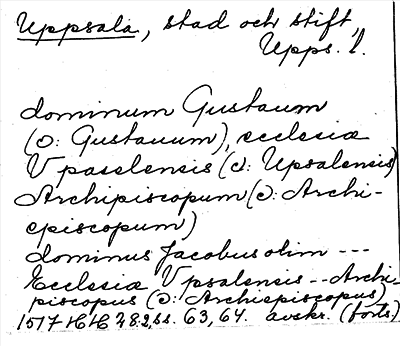 Uppsala, stad och stift,
Upps. l.
dominum Gustaum
(ɔ: Gustauum), ecclesiæ
Vpaselensis (ɔ: Upsalensis)
Archipiscopum (ɔ: Archi-
episcopum)
dominus Jacobus olim ---
Ecclesiæ Vpsalensis -- Archi-
piscopus (ɔ: Archiepiscopus)
1517 HH 28:2, ss. 63, 64. avskr. (forts.)